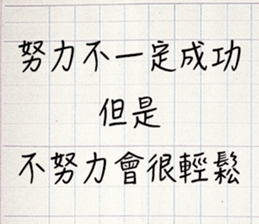 努力不一定成功
但是
不努力會很輕鬆